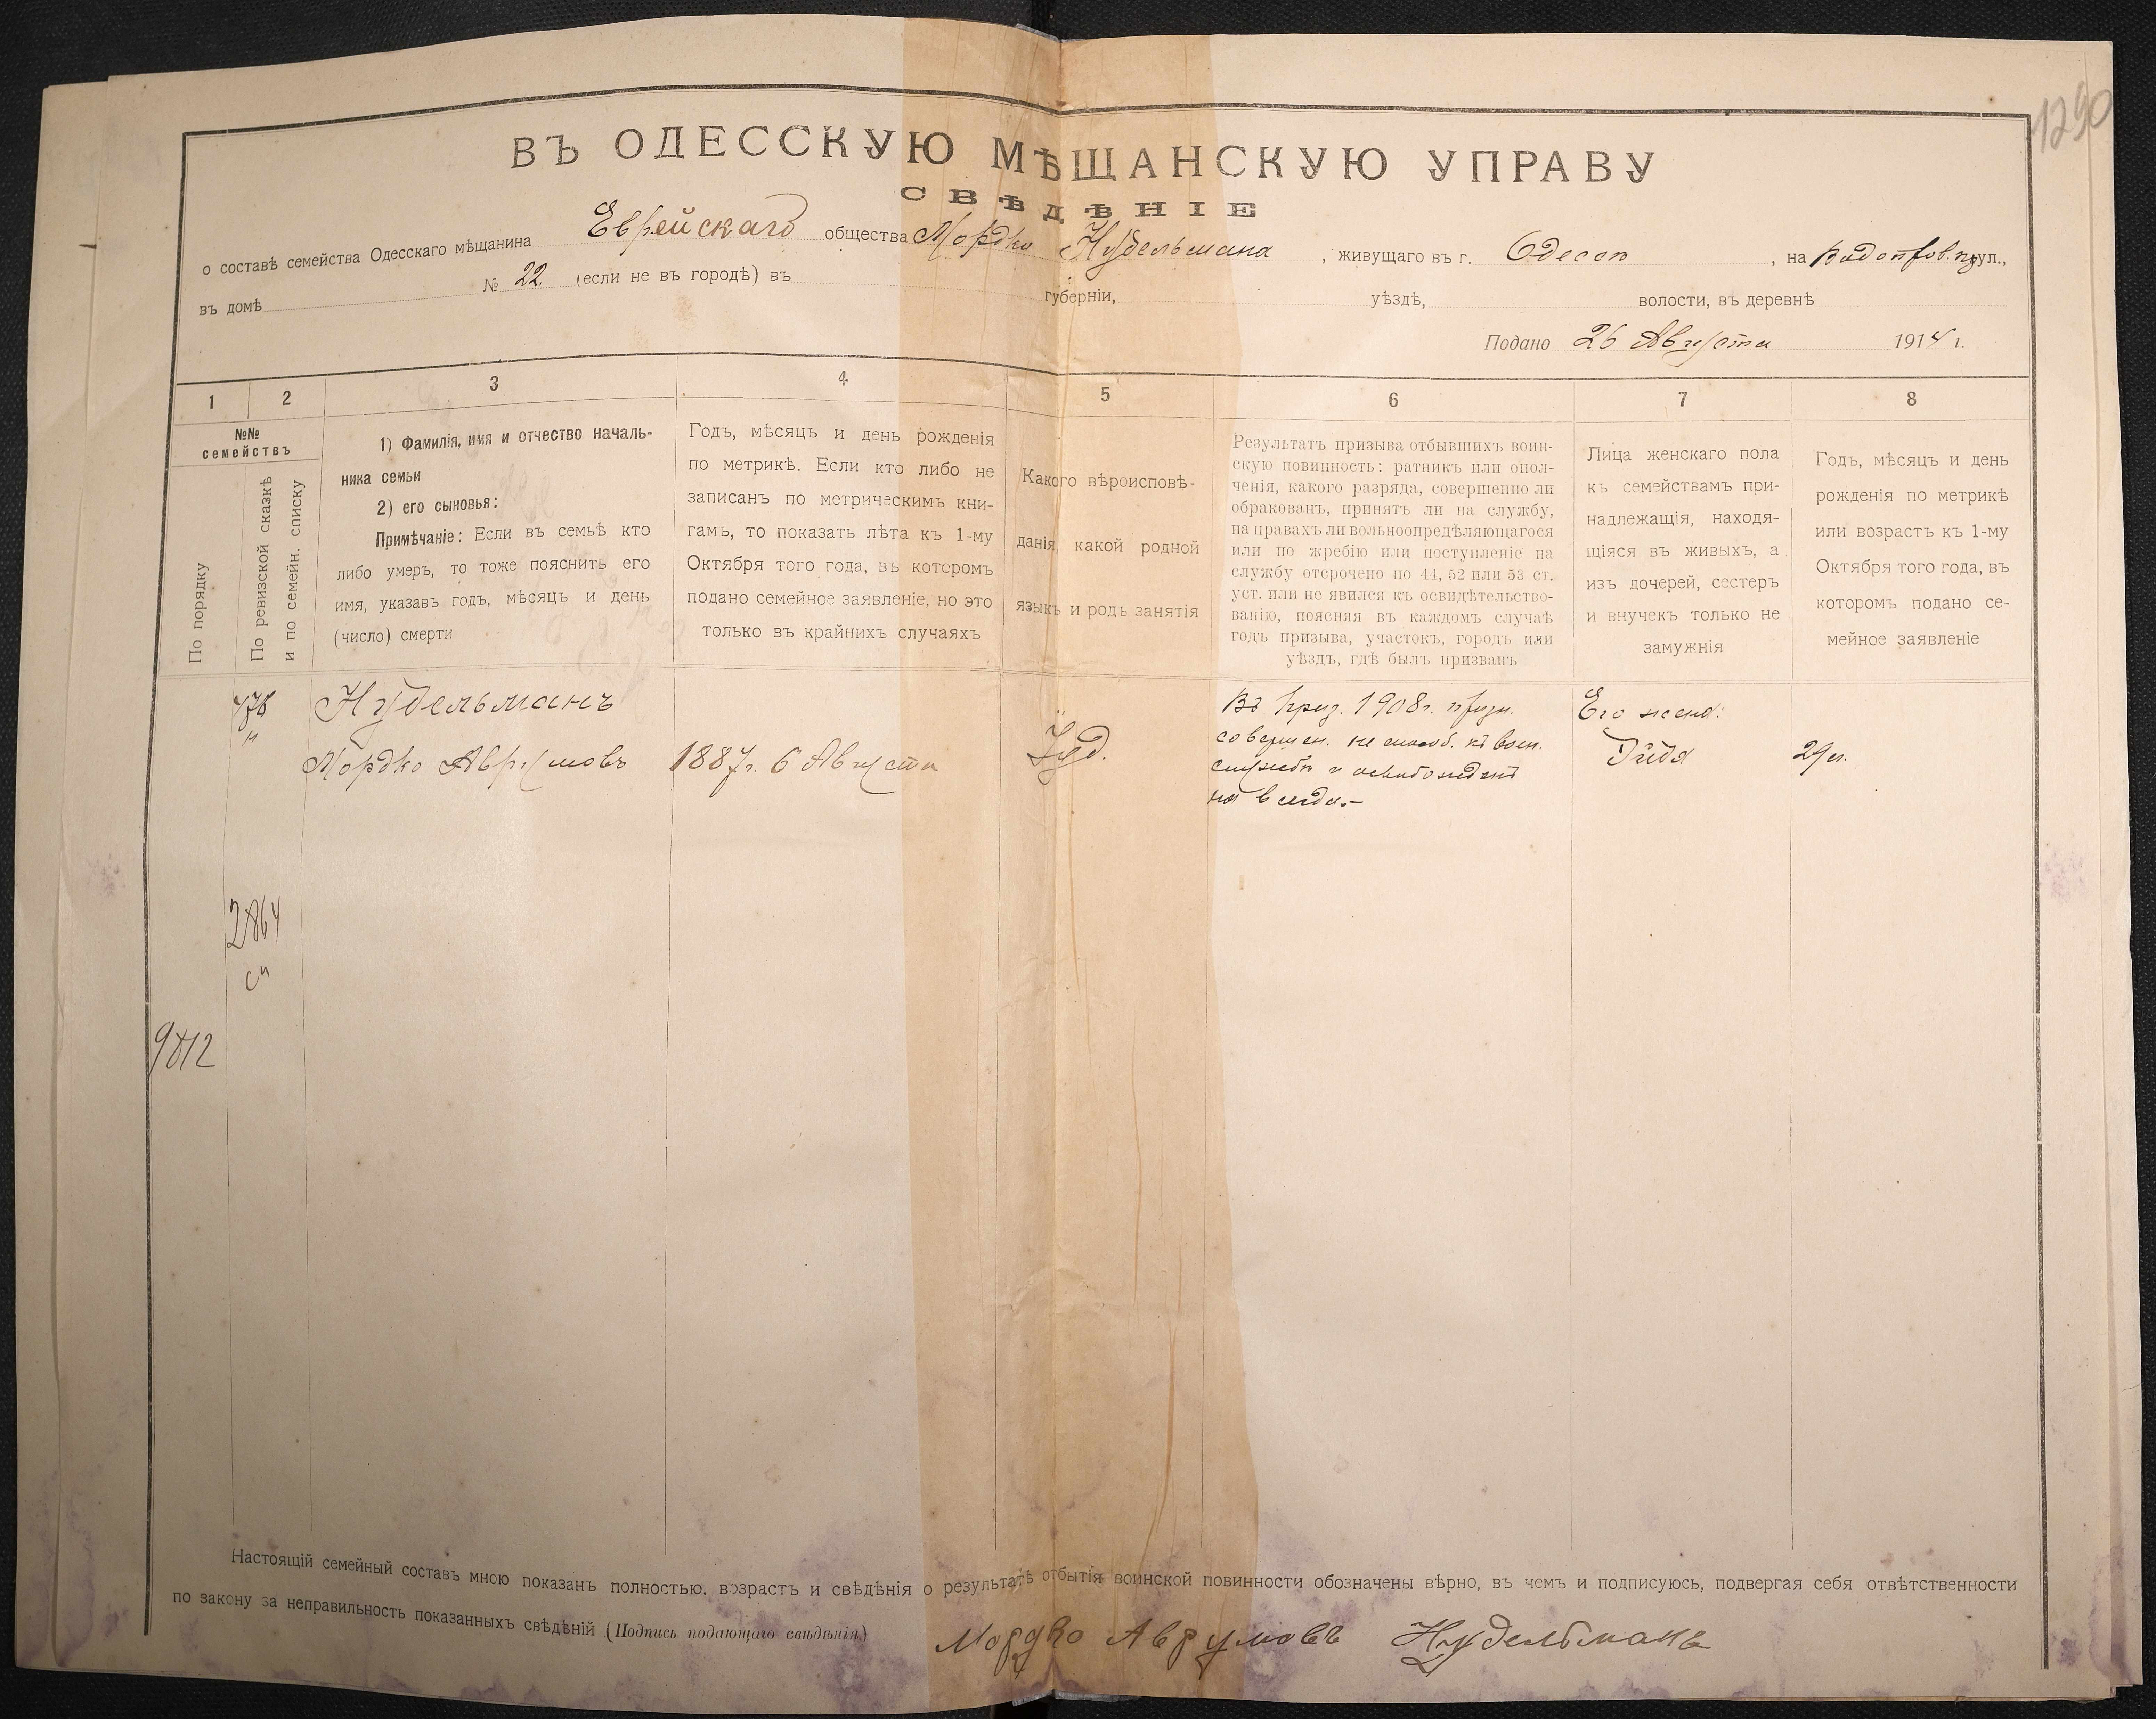 1290
ВЪ ОДЕССКУЮ МѢЩАНСКУЮ УПРАВУ
СВѢДѢНІЕ
о составѣ семейства Одесскаго мѣщанина Еврейскаго общества Мордко Нудельмана, живущаго въ г. Одессѣ, на ул.,
въ домѣ № 22. (если не въ городѣ) въ губерніи, уѣздѣ, волости, въ деревнѣ
Подано 26 Августа 1914 г.
1 2 3 4 5 6 7 8
№№
семействъ
По порядку
По ревизской сказкѣ
и по семейн. списку
1) Фамилія, имя и отчество началь-
ника семьи
2) его сыновья:
Примѣчаніе: Если въ семьѣ кто
либо умеръ, то тоже пояснить его
имя, указавъ годъ, мѣсяцъ и день
(число) смерти
Годъ, мѣсяцъ и день рожденія
по метрикѣ. Если кто либо не
записанъ по метрическимъ кни-
гамъ, то показать лѣта къ 1-му
Октября того года, въ которомъ
подано семейное заявленіе, но это
только въ крайнихъ случаяхъ
Какого вѣроисповѣ-
данія, какой родной
языкъ и родъ занятія
Результатъ призыва отбывшихъ воин-
скую повинность: ратникъ или опол-
ченія, какого разряда, совершенно ли
обракованъ, принятъ ли на службу,
на правахъ ли вольноопредѣляющагося
или по жребію или поступленіе на
службу отсрочено по 44, 52 или 53 ст.
уст. или не явился къ освидѣтельство-
ванію, поясняя въ каждомъ случаѣ
годъ призыва, участокъ, городъ или
уѣздъ, гдѣ былъ призванъ
Лица женскаго пола
къ семействамъ при-
надлежащія, находя-
щіяся въ живыхъ, а
изъ дочерей, сестеръ
и внучекъ только не
замужнія
Годъ, мѣсяцъ и день
рожденія по метрикѣ
или возрастъ къ 1-му
Октября того года, въ
которомъ подано се-
мейное заявленіе
Нудельманъ
Мордко Аврумовъ
1887 г. 6 Августа
Іуд.
Въ приз. 1908 г. призн.
совершен. не способ. къ воен.
службѣ и освобожденъ
на всегда.-
Его жена:
29 л.
2864
9812
Настоящій семейный составъ мною показанъ полностью, возрастъ и свѣдѣнія о результатѣ отбытія воинской повинности обозначены вѣрно, въ чемъ и подписуюсь, подвергая себя отвѣтственности
по закону за неправильность показанныхъ свѣдѣній (Подпись подающаго свѣдѣнія) Мордко Аврумовъ Нудельманъ